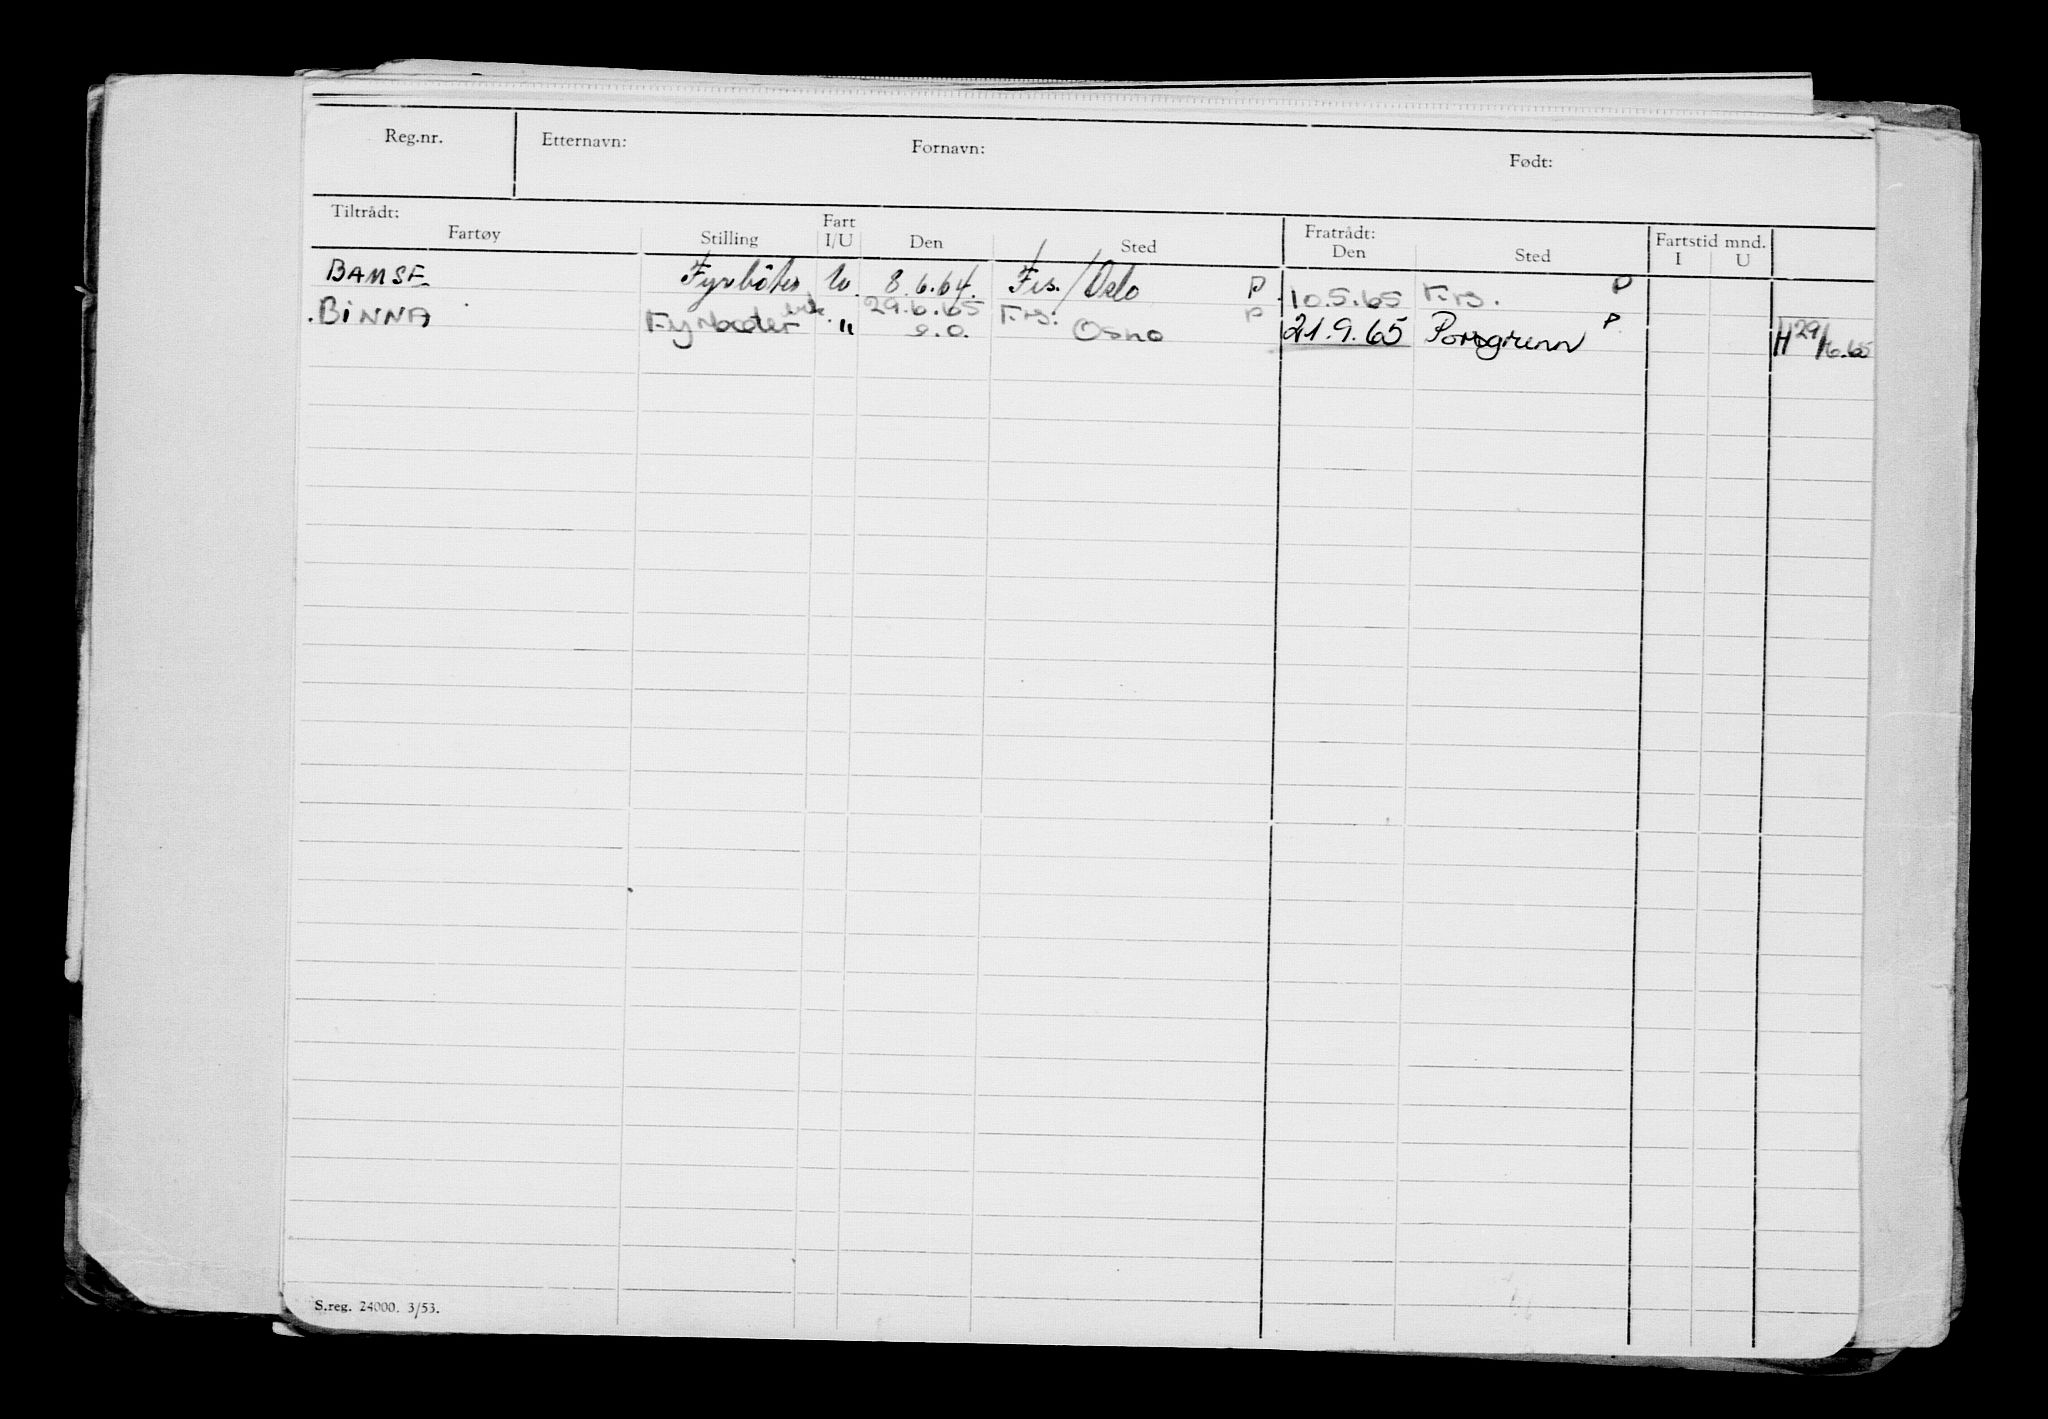 Reg.nr. Etternavn: Fornavn: Født:
Tiltrådt: Fartøy Stilling Fart I/U Den Sted Fratrådt: Den Sted Fartstid mnd. I U
BAMSE Fyrbøter U. 8.6.64. Frs./Oslo P 10.5.65 Frs. P
BINNA Fyrbøter " 29.6.65 Frs. Oslo P 21.9.65 Porsgrunn P H 29/6.65
S.reg. 24000. 3/53.